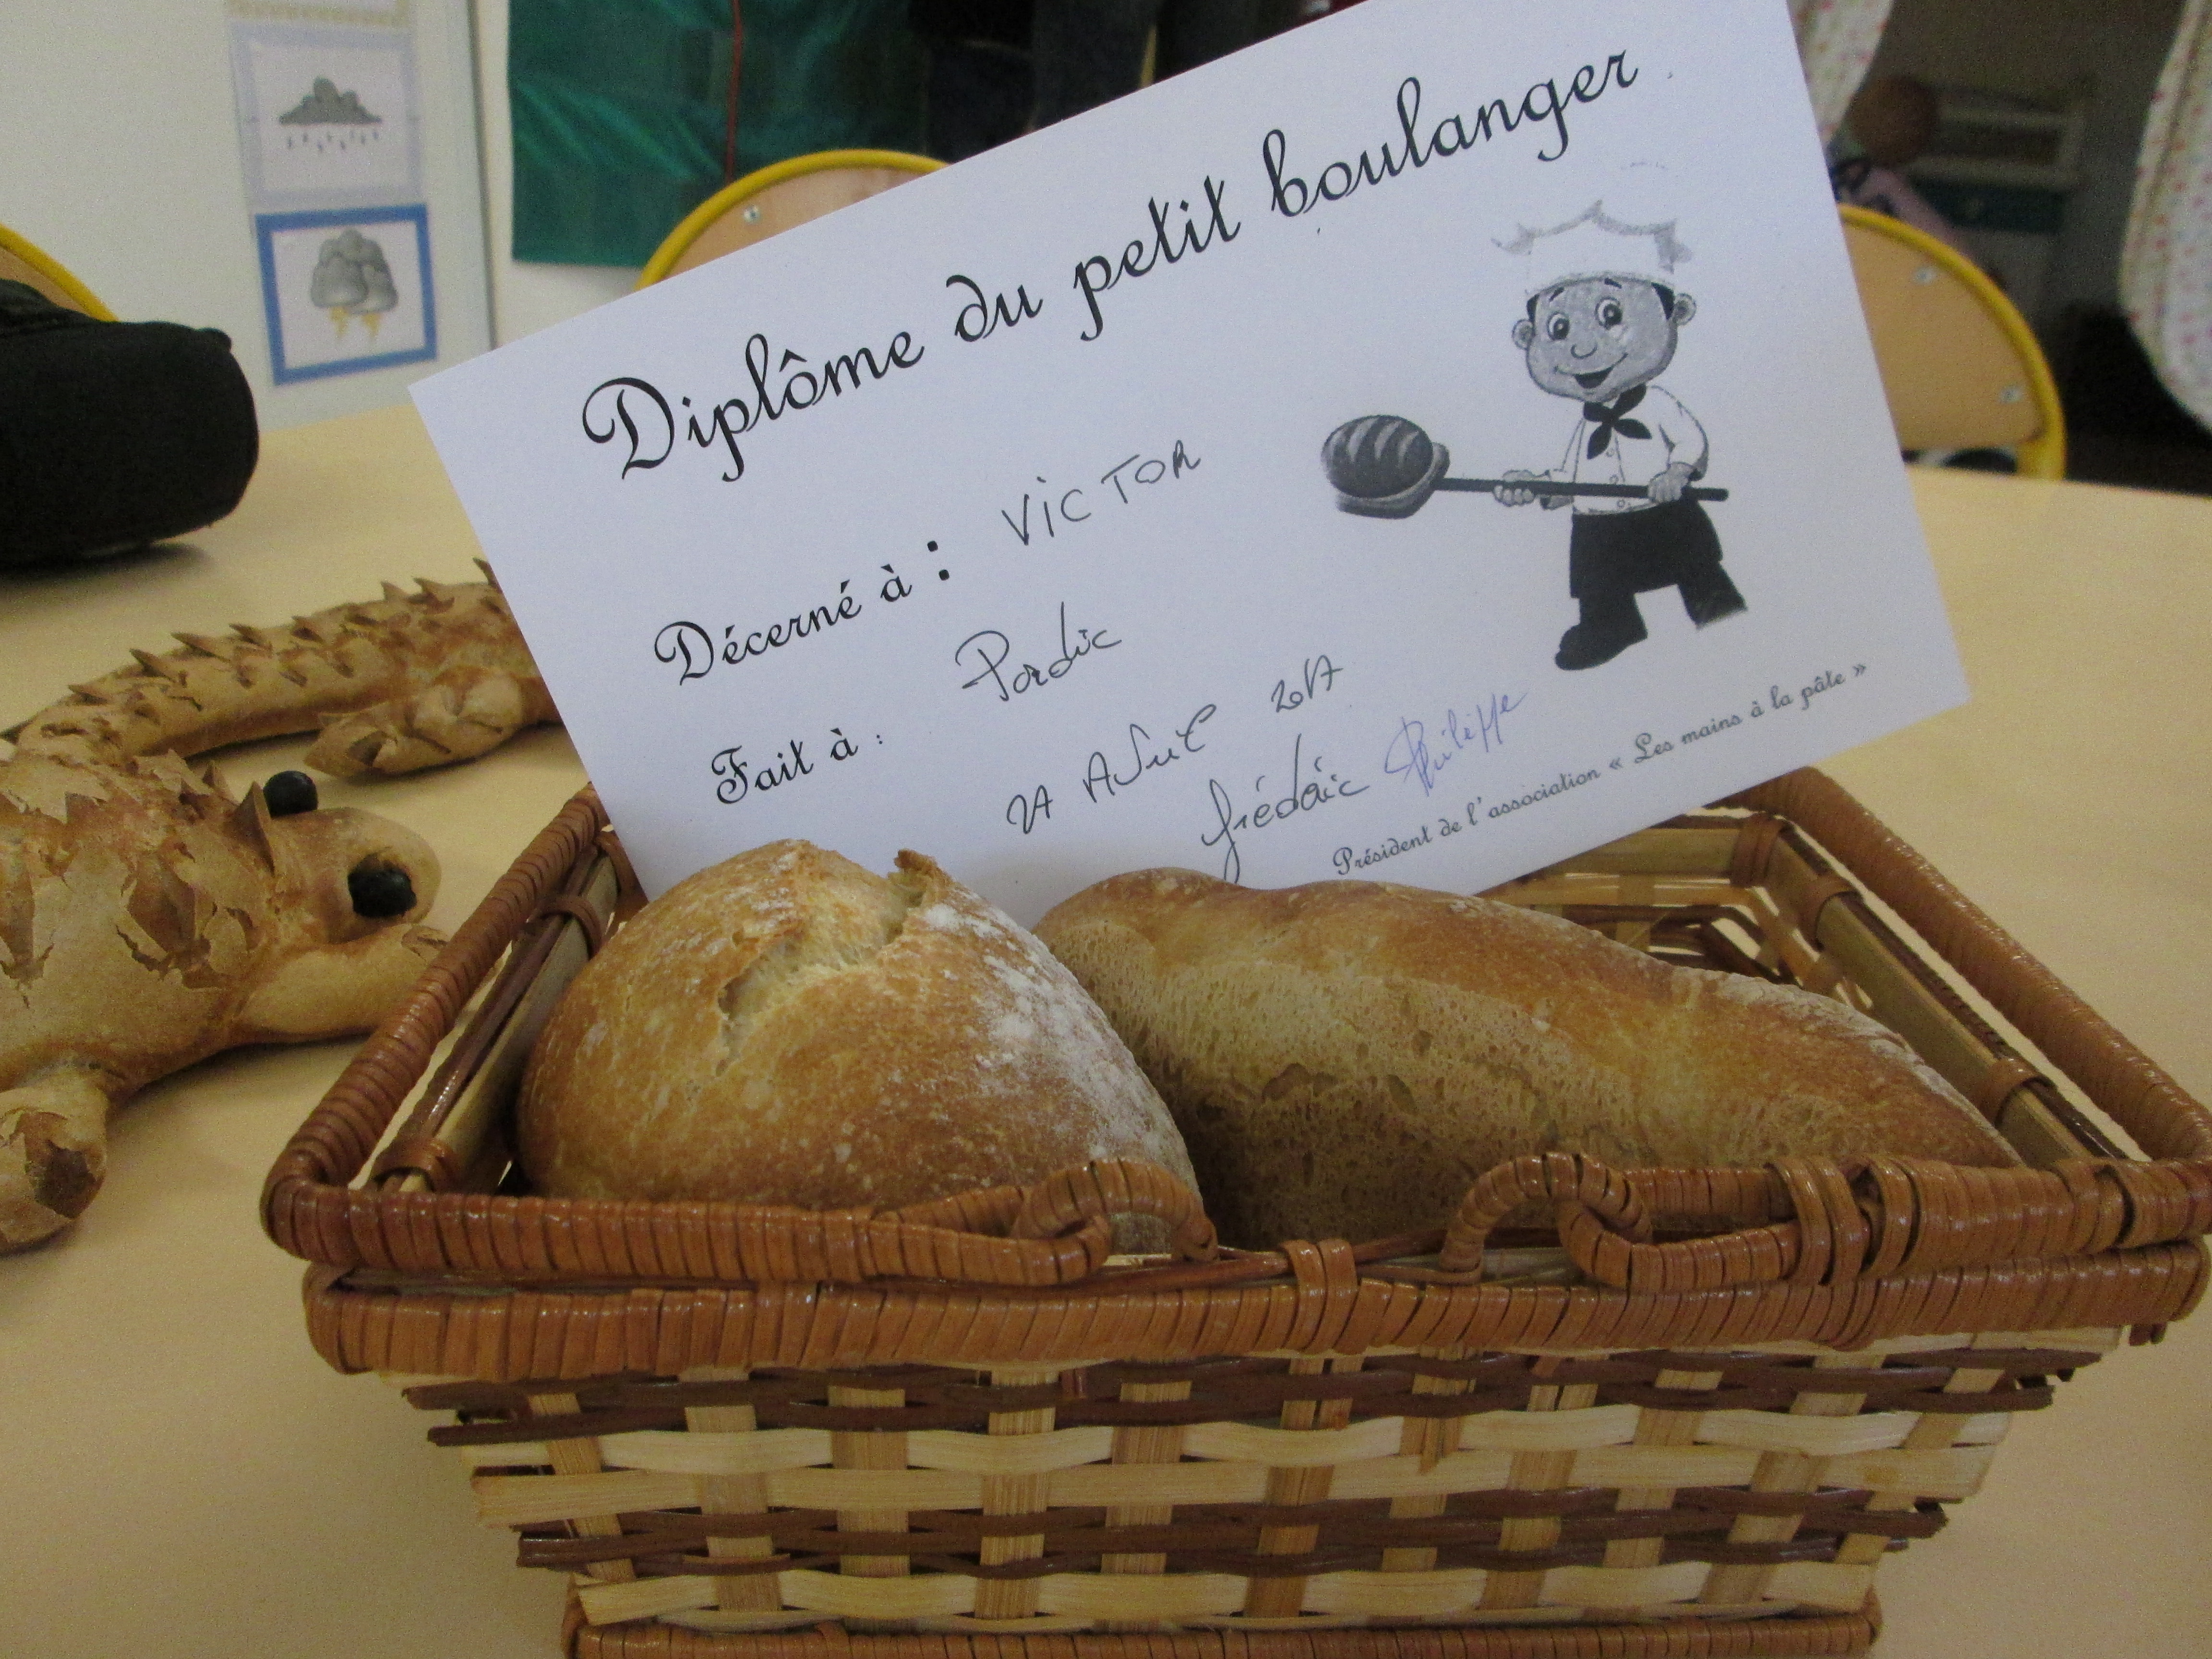 Diplôme du petit boulanger
Décerné à : VICTOR
Fait à : Pordic
AVRIL 2017
Frédéric Philippe
Président de l'association « Les mains à la pâte »